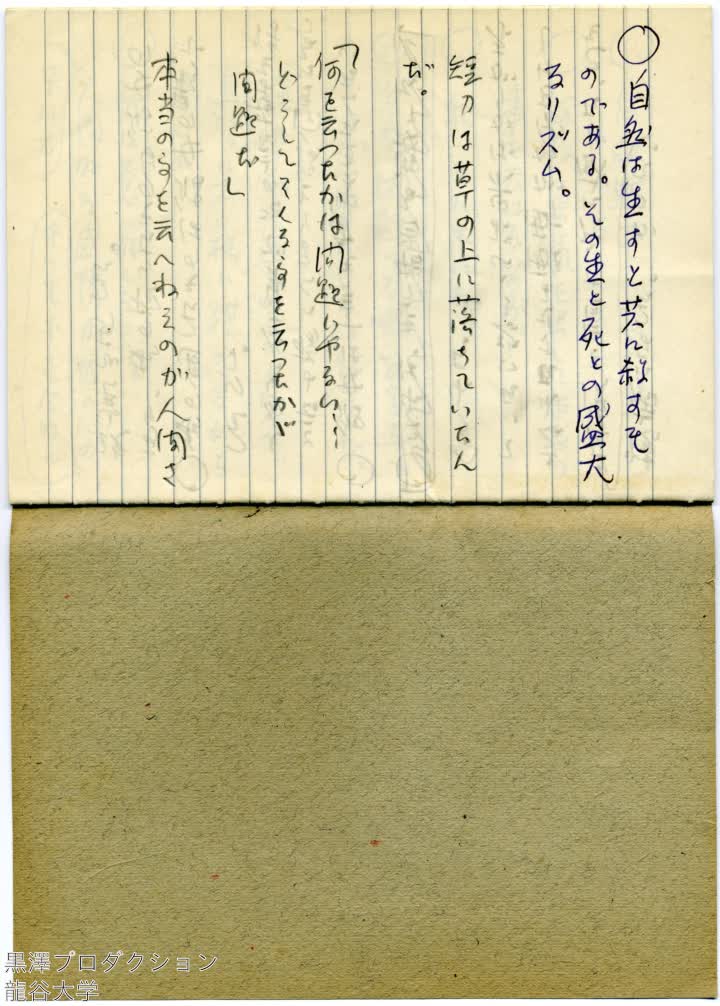 ○ 自然は生すと共に殺すも
のである。その生と死との盛大
なるリズム。
短刀は草の上に落ちていたん
だ。
「何を云つたかは問題ぢやない…
どうしてそんな事を云つたかが
問題だ」
本当の事を云へねえのが人間さ
黒澤プロダクション
龍谷大学